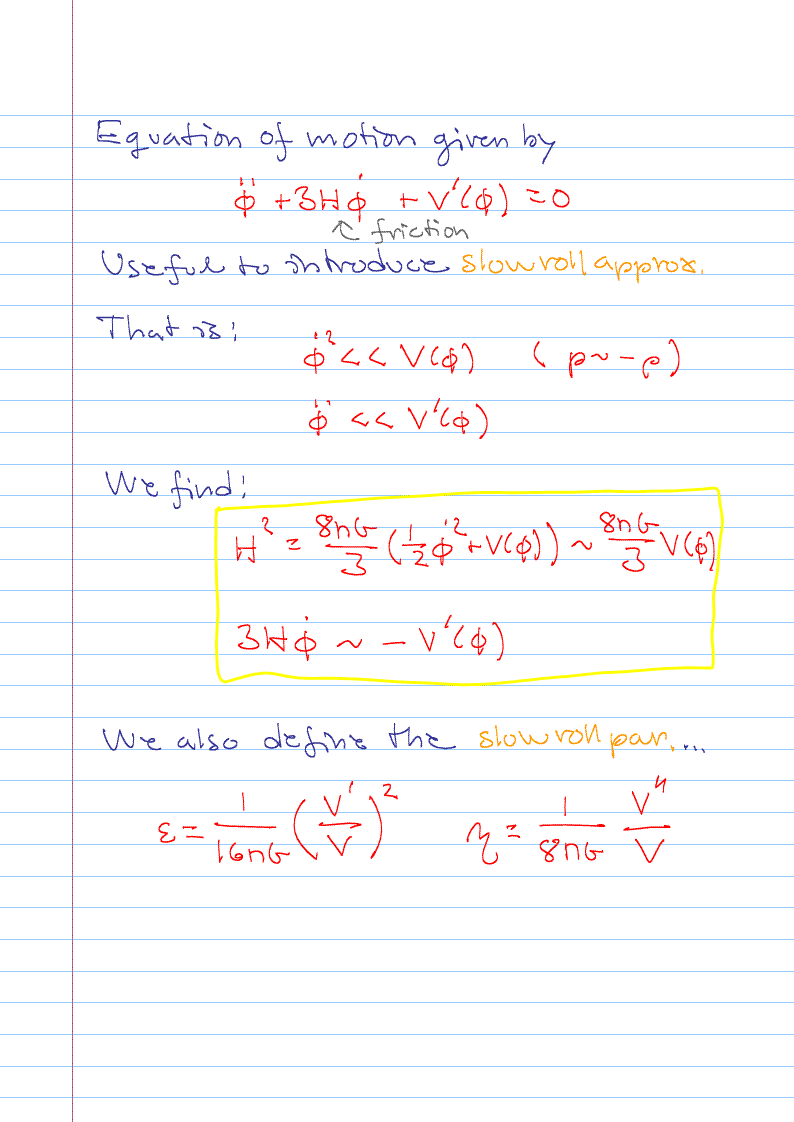 Equation of motion given by
φ̈ + 3Hφ̇ + V'(φ) = 0
↖ friction
Useful to introduce slow roll approx.
That is:
φ̇² << V(φ) (p ~ -ρ)
φ̈ << V'(φ)
We find:
H² = 8πG/3 (1/2 φ̇² + V(φ)) ~ 8πG/3 V(φ)
3Hφ̇ ~ - V'(φ)
We also define the slow roll par....
ε = 1/16πG (V'/V)² η = 1/8πG V''/V